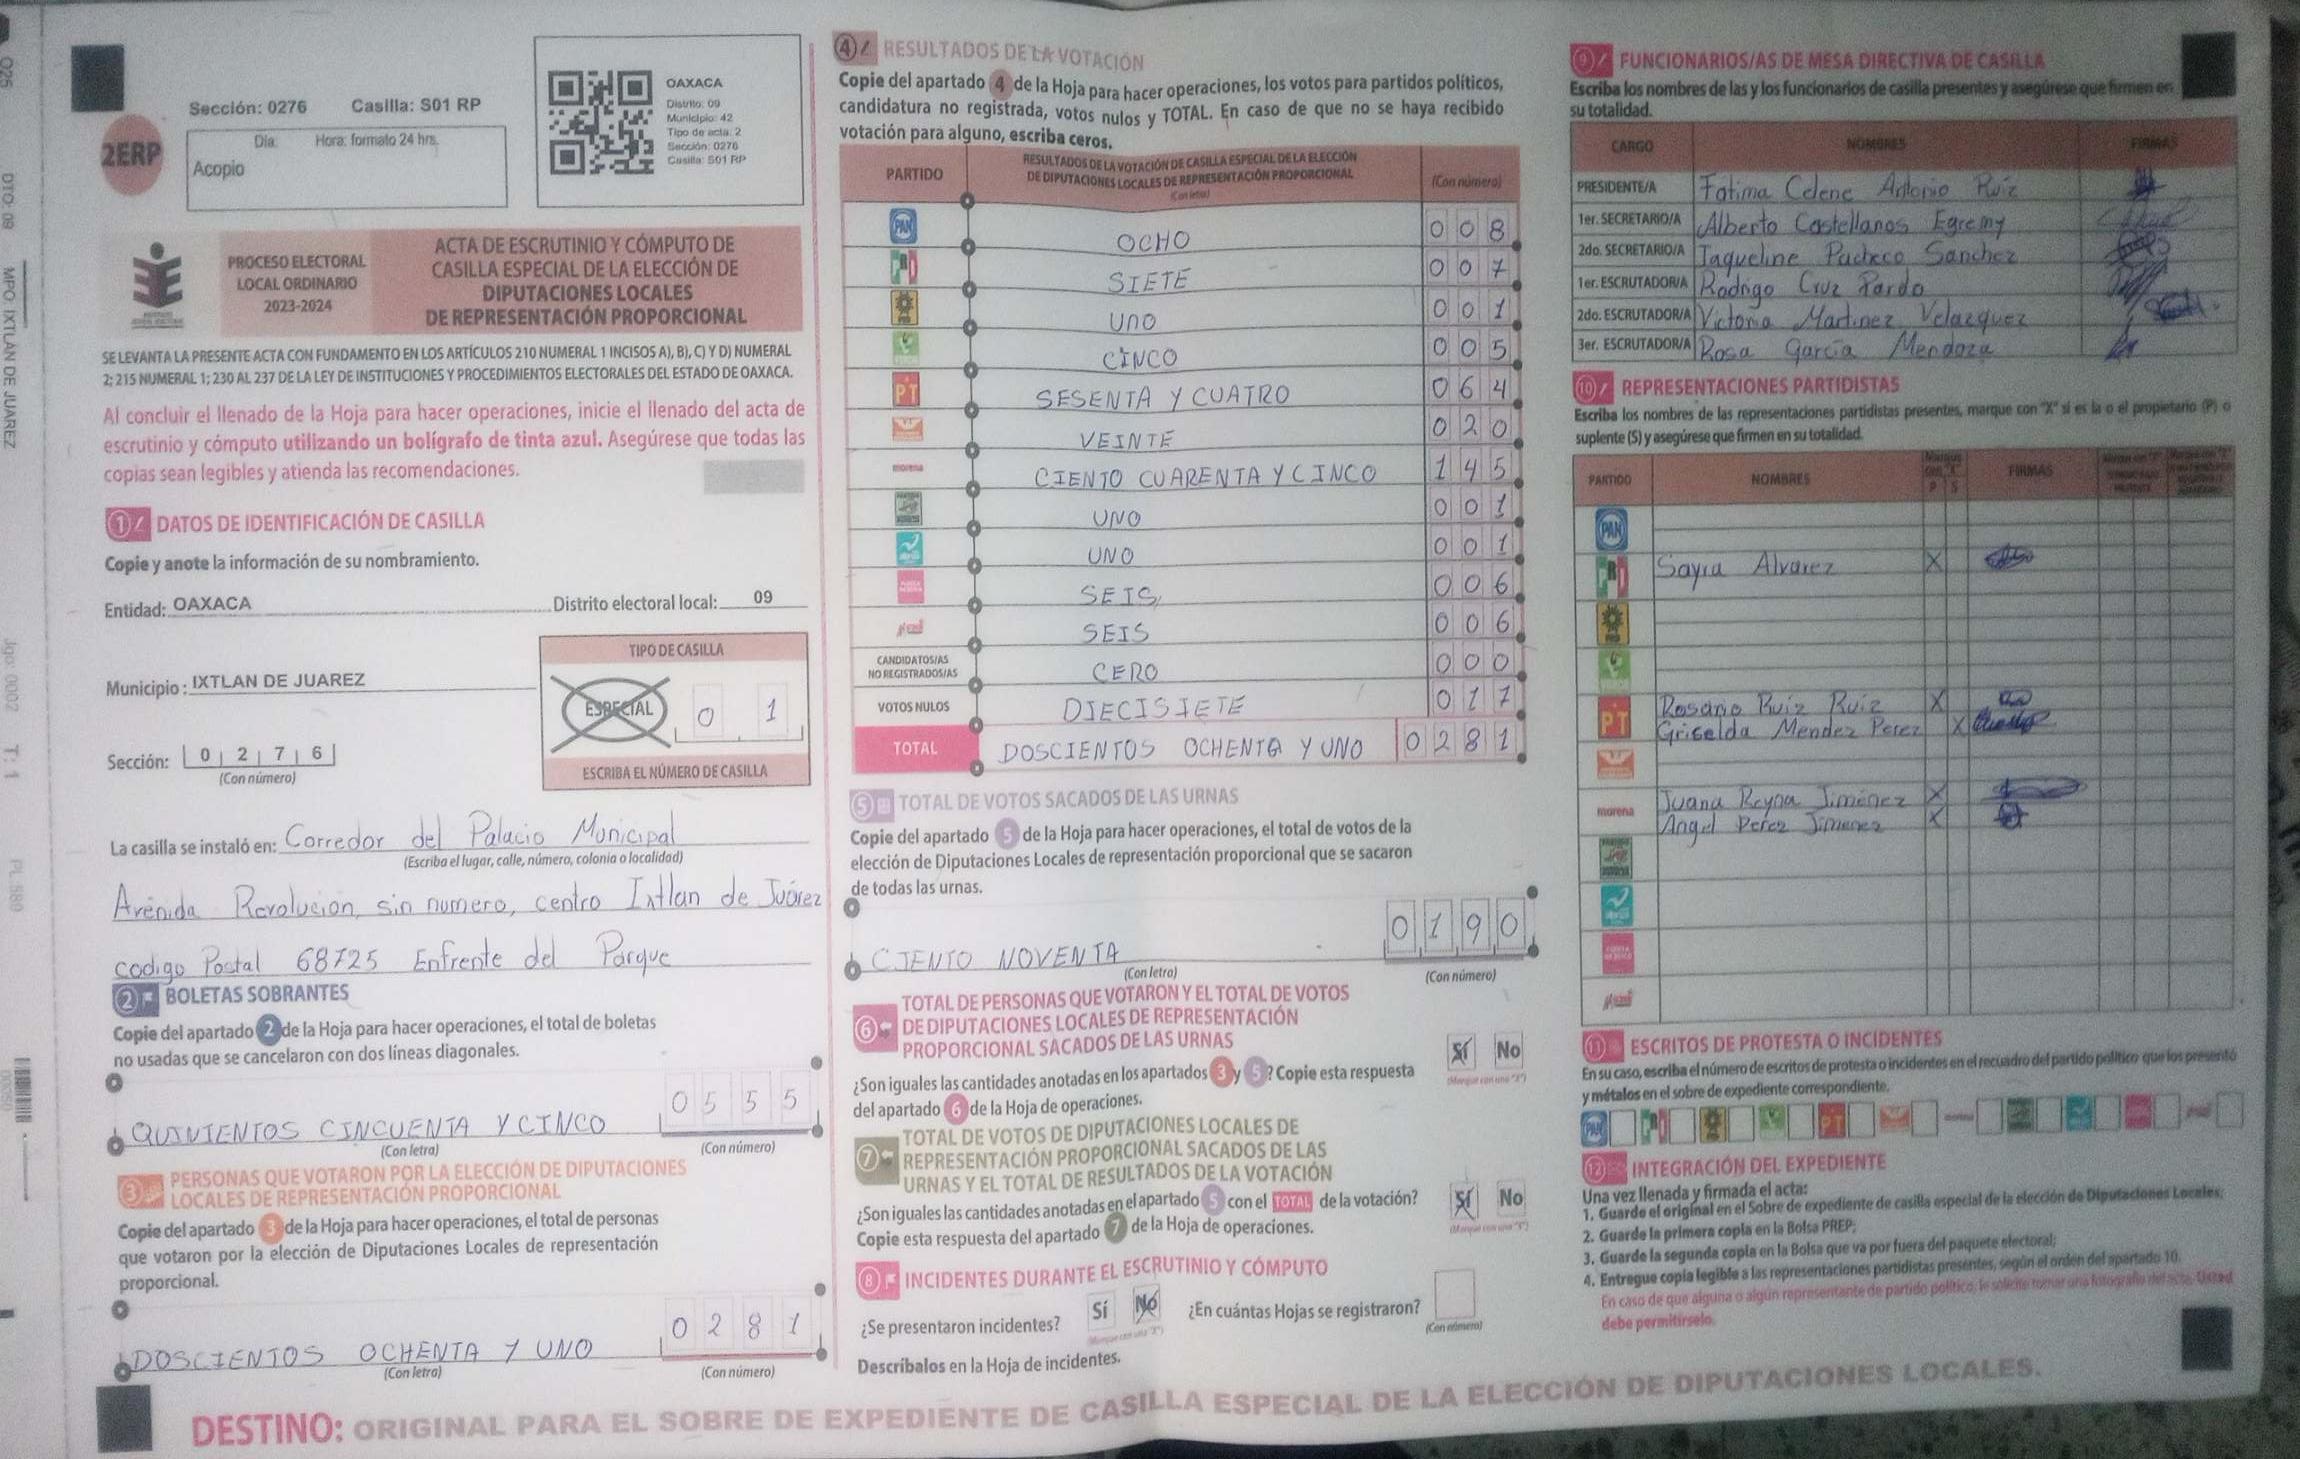 Sección: 0276 Casilla: S01 RP
2ERP
Día: Hora: formato 24 hrs.
Acopio
OAXACA
Distrito: 09
Municipio: 42
Tipo de acta: 2
Sección: 0276
Casilla: S01 RP
PROCESO ELECTORAL
LOCAL ORDINARIO
2023-2024
ACTA DE ESCRUTINIO Y CÓMPUTO DE
CASILLA ESPECIAL DE LA ELECCIÓN DE
DIPUTACIONES LOCALES
DE REPRESENTACIÓN PROPORCIONAL
SE LEVANTA LA PRESENTE ACTA CON FUNDAMENTO EN LOS ARTÍCULOS 210 NUMERAL 1 INCISOS A), B), C) Y D) NUMERAL
2; 215 NUMERAL 1; 230 AL 237 DE LA LEY DE INSTITUCIONES Y PROCEDIMIENTOS ELECTORALES DEL ESTADO DE OAXACA.
Al concluir el llenado de la Hoja para hacer operaciones, inicie el llenado del acta de
escrutinio y cómputo utilizando un bolígrafo de tinta azul. Asegúrese que todas las
copias sean legibles y atienda las recomendaciones.
1 DATOS DE IDENTIFICACIÓN DE CASILLA
Copie y anote la información de su nombramiento.
Entidad: OAXACA Distrito electoral local: 09
Municipio: IXTLAN DE JUAREZ
TIPO DE CASILLA
ESPECIAL 0 1
ESCRIBA EL NÚMERO DE CASILLA
Sección: 0 2 7 6
(Con número)
La casilla se instaló en: Corredor del Palacio Municipal
(Escriba el lugar, calle, número, colonia o localidad)
Avenida Revolución, sin numero, centro Ixtlan de Juárez
codigo Postal 68725 Enfrente del Parque
2 BOLETAS SOBRANTES
Copie del apartado 2 de la Hoja para hacer operaciones, el total de boletas
no usadas que se cancelaron con dos líneas diagonales.
QUINIENTOS CINCUENTA Y CINCO 0 5 5 5
(Con letra) (Con número)
3 PERSONAS QUE VOTARON POR LA ELECCIÓN DE DIPUTACIONES
LOCALES DE REPRESENTACIÓN PROPORCIONAL
Copie del apartado 3 de la Hoja para hacer operaciones, el total de personas
que votaron por la elección de Diputaciones Locales de representación
proporcional.
DOSCIENTOS OCHENTA Y UNO 0 2 8 1
(Con letra) (Con número)
4 RESULTADOS DE LA VOTACIÓN
Copie del apartado 4 de la Hoja para hacer operaciones, los votos para partidos políticos,
candidatura no registrada, votos nulos y TOTAL. En caso de que no se haya recibido
votación para alguno, escriba ceros.
PARTIDO
RESULTADOS DE LA VOTACIÓN DE CASILLA ESPECIAL DE LA ELECCIÓN
DE DIPUTACIONES LOCALES DE REPRESENTACIÓN PROPORCIONAL
(Con letra) (Con número)
PAN OCHO 0 0 8
PRI SIETE 0 0 7
PRD UNO 0 0 1
CINCO 0 0 5
PT SESENTA Y CUATRO 0 6 4
VEINTE 0 2 0
morena CIENTO CUARENTA Y CINCO 1 4 5
UNO 0 0 1
UNO 0 0 1
SEIS 0 0 6
SEIS 0 0 6
CANDIDATOS/AS
NO REGISTRADOS/AS CERO 0 0 0
VOTOS NULOS DIECISIETE 0 1 7
TOTAL DOSCIENTOS OCHENTA Y UNO 0 2 8 1
5 TOTAL DE VOTOS SACADOS DE LAS URNAS
Copie del apartado 5 de la Hoja para hacer operaciones, el total de votos de la
elección de Diputaciones Locales de representación proporcional que se sacaron
de todas las urnas.
CIENTO NOVENTA 0 1 9 0
(Con letra) (Con número)
6 TOTAL DE PERSONAS QUE VOTARON Y EL TOTAL DE VOTOS
DE DIPUTACIONES LOCALES DE REPRESENTACIÓN
PROPORCIONAL SACADOS DE LAS URNAS
¿Son iguales las cantidades anotadas en los apartados 3 y 5? Copie esta respuesta
del apartado 6 de la Hoja de operaciones.
Sí No
(Marque con una "X")
7 TOTAL DE VOTOS DE DIPUTACIONES LOCALES DE
REPRESENTACIÓN PROPORCIONAL SACADOS DE LAS
URNAS Y EL TOTAL DE RESULTADOS DE LA VOTACIÓN
¿Son iguales las cantidades anotadas en el apartado 5 con el TOTAL de la votación?
Copie esta respuesta del apartado 7 de la Hoja de operaciones.
Sí No
(Marque con una "X")
8 INCIDENTES DURANTE EL ESCRUTINIO Y CÓMPUTO
¿Se presentaron incidentes? Sí No ¿En cuántas Hojas se registraron?
(Marque con una "X") (Con número)
Descríbalos en la Hoja de incidentes.
9 FUNCIONARIOS/AS DE MESA DIRECTIVA DE CASILLA
Escriba los nombres de las y los funcionarios de casilla presentes y asegúrese que firmen en
su totalidad.
CARGO NOMBRES FIRMAS
PRESIDENTE/A Fatima Celene Antonio Ruiz
1er. SECRETARIO/A Alberto Castellanos Egremy
2do. SECRETARIO/A Jaqueline Pacheco Sanchez
1er. ESCRUTADOR/A Rodrigo Cruz Pardo
2do. ESCRUTADOR/A Victoria Martinez Velazquez
3er. ESCRUTADOR/A Rosa García Mendoza
10 REPRESENTACIONES PARTIDISTAS
Escriba los nombres de las representaciones partidistas presentes, marque con "X" si es la o el propietario (P) o
suplente (S) y asegúrese que firmen en su totalidad.
PARTIDO NOMBRES P S FIRMAS
PAN
PRI Sayra Alvarez X
PRD
PT Rosario Ruiz Ruiz X
Griselda Mendez Perez X
morena Juana Reyna Jiménez X
Angel Perez Jimenez X
11 ESCRITOS DE PROTESTA O INCIDENTES
En su caso, escriba el número de escritos de protesta o incidentes en el recuadro del partido político que los presentó
y métalos en el sobre de expediente correspondiente.
12 INTEGRACIÓN DEL EXPEDIENTE
Una vez llenada y firmada el acta:
1. Guarde el original en el Sobre de expediente de casilla especial de la elección de Diputaciones Locales;
2. Guarde la primera copia en la Bolsa PREP;
3. Guarde la segunda copia en la Bolsa que va por fuera del paquete electoral;
4. Entregue copia legible a las representaciones partidistas presentes, según el orden del apartado 10.
En caso de que alguna o algún representante de partido político, le solicite tomar una fotografía del acta, Usted
debe permitírselo.
DESTINO: ORIGINAL PARA EL SOBRE DE EXPEDIENTE DE CASILLA ESPECIAL DE LA ELECCIÓN DE DIPUTACIONES LOCALES.
DTO: 09 MPO: IXTLÁN DE JUÁREZ